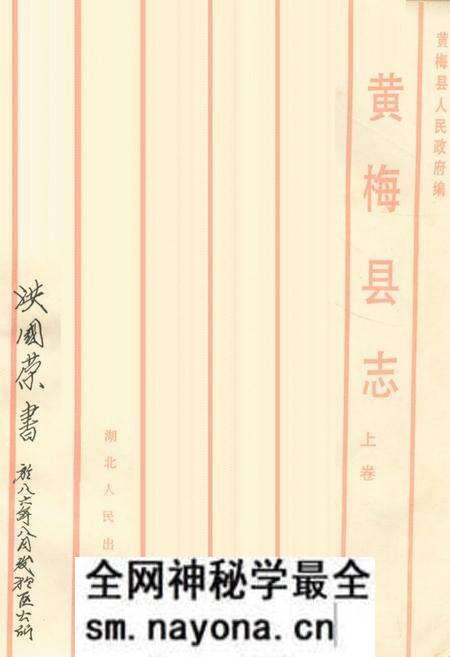 黄梅县人民政府编
黄梅县志
上卷
湖北人民出
洪国荣書
於八六年八月
区公所
全网神秘学最全
sm.nayona.cn